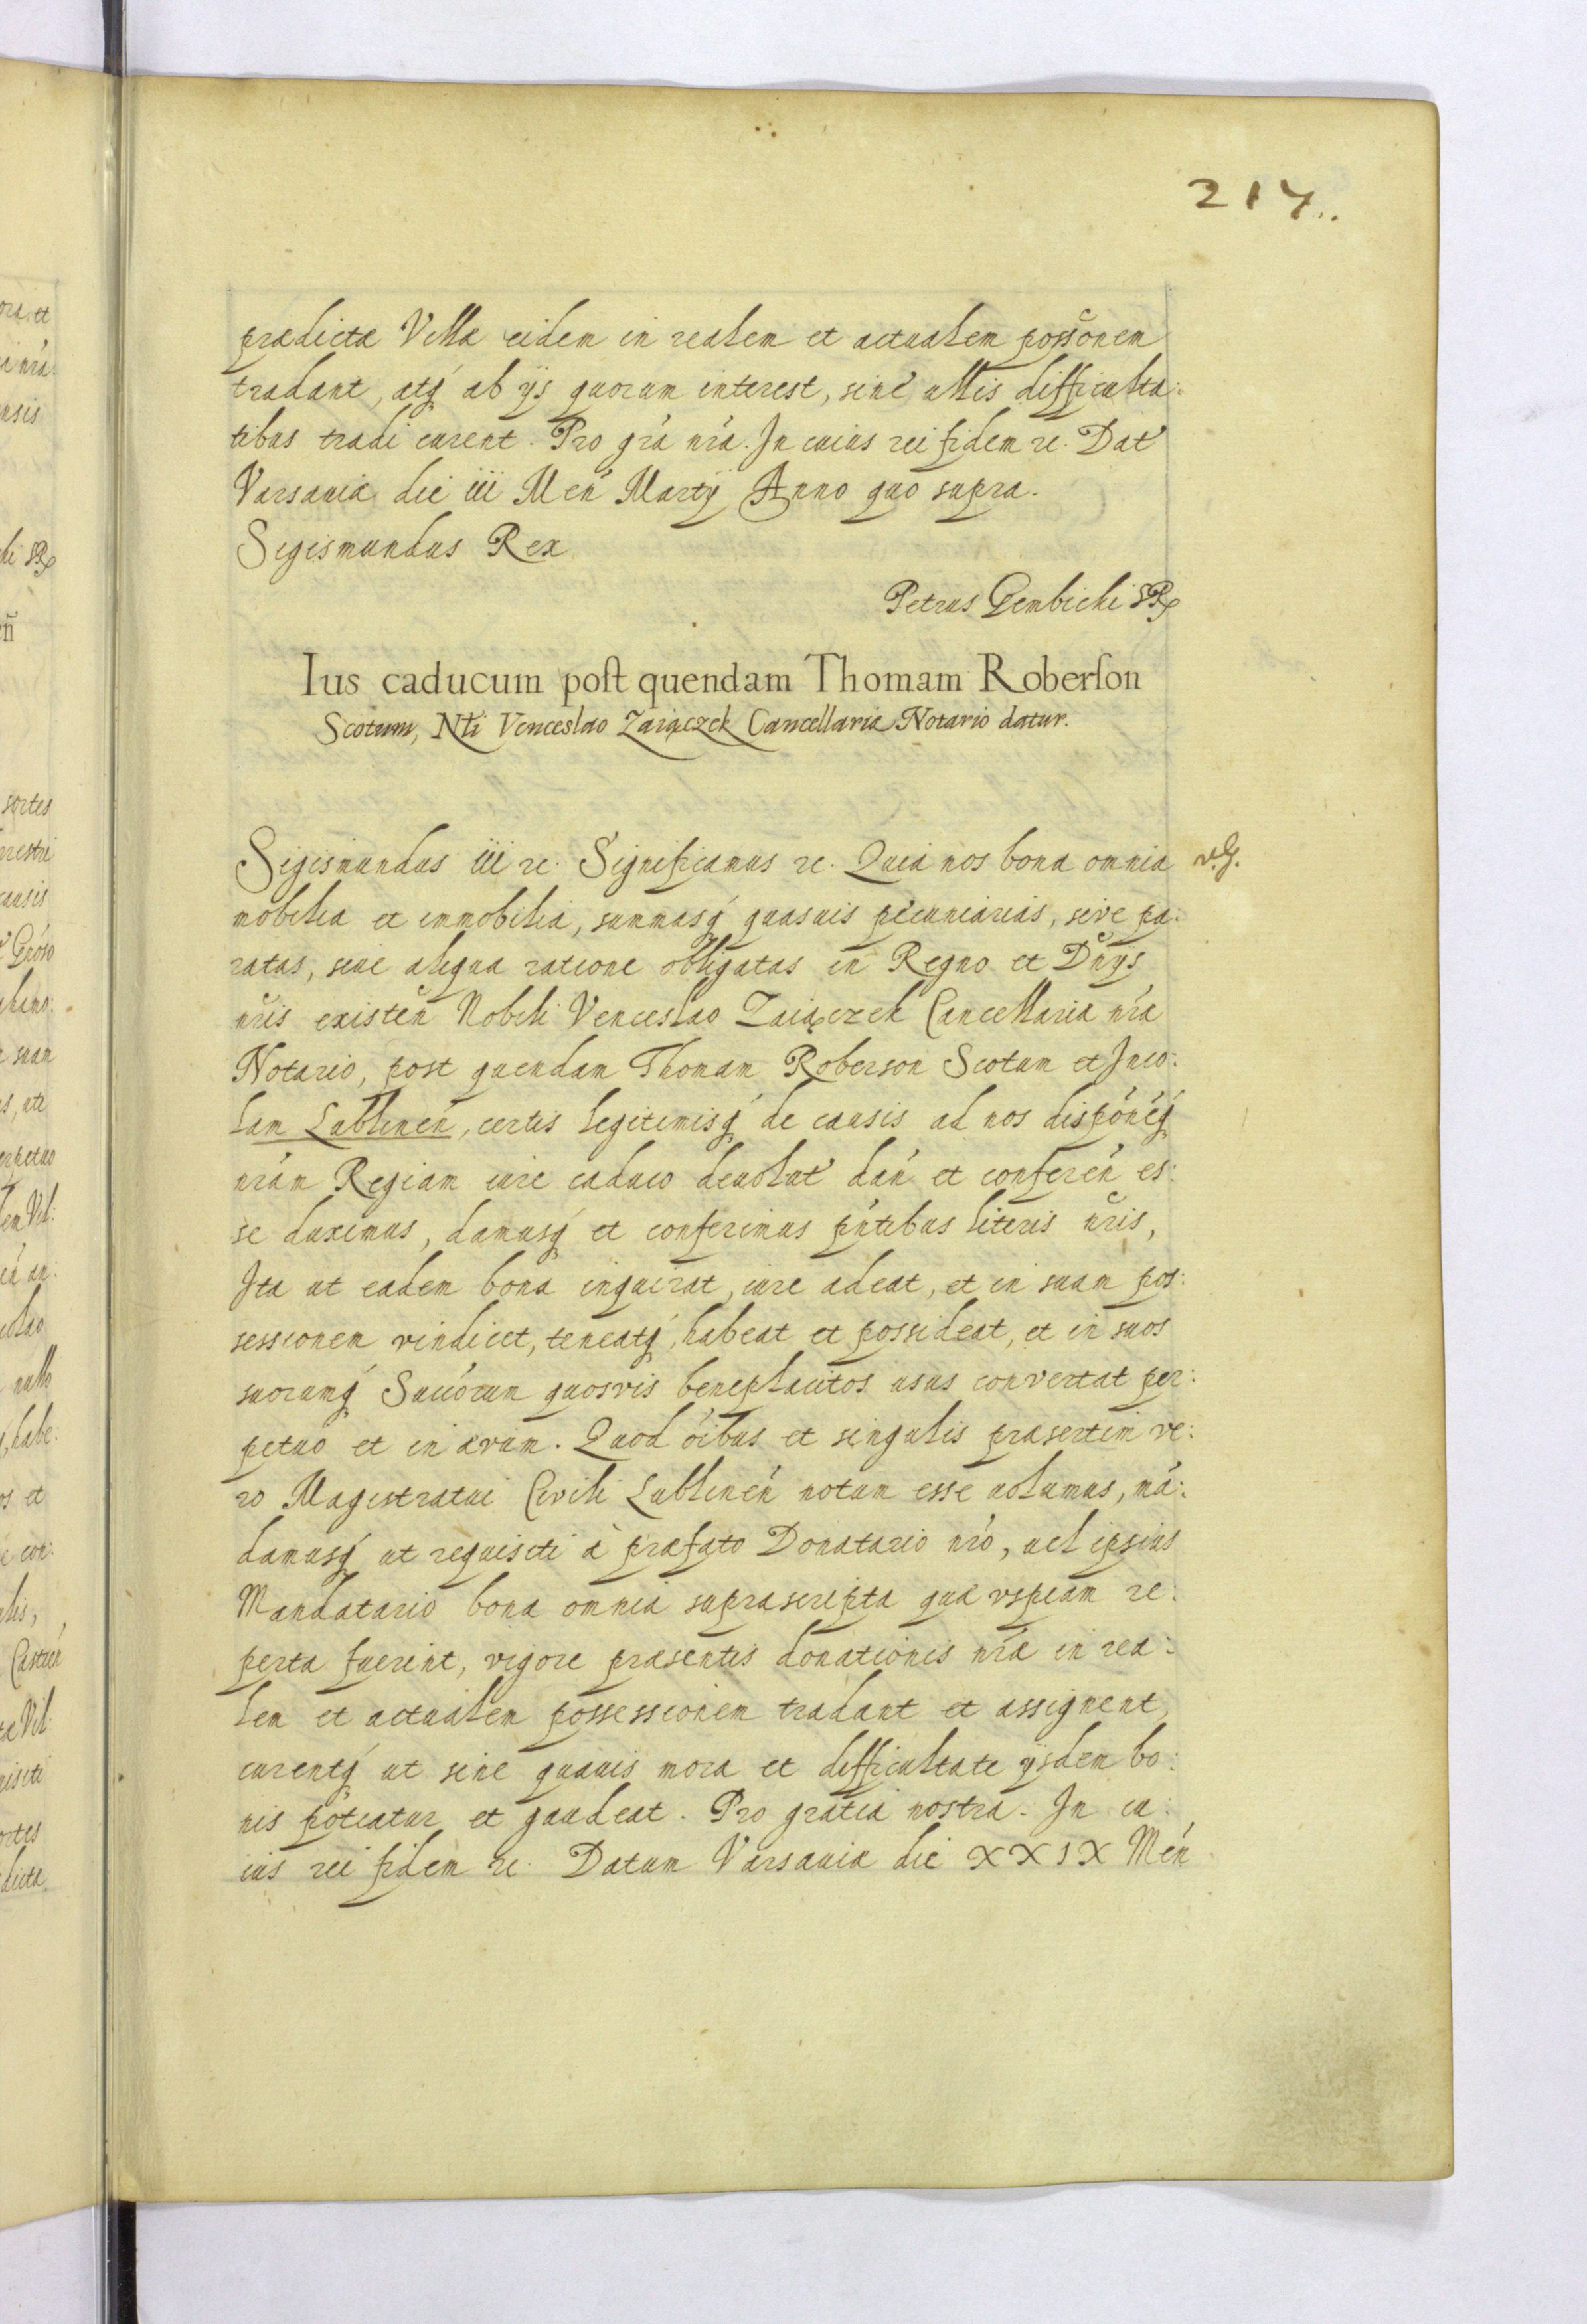 217..
prædictæ Villæ eidem in realem et actualem possonem
tradant, atq́ ab ijs quorum interest, sine ullis difficulta:
tibus tradi curent. Pro grã nrã. In cuius rei fidem &c. Dat
Varsaviæ die iii Men̄ Martij Anno quo supra.
Sigismundus Rex
Petrus Gembicki SR
Ius caducum post quendam Thomam Roberson
Scotum, Nli Venceslao Zaiączek Cancellariæ Notario datur.
Sigismundus iii &c. Significamus &c. Quia nos bona omnia
mobilia et immobilia, summasq́ quasuis pecuniarias, sive pa:
ratas, siue aliqua ratione obligatas in Regno et Dn̄ijs
nr̄is existen̄ Nobili Venceslao Zaiączek Cancellariæ nr̃æ
Notario, post quendam Thomam Roberson Scotum et Inco:
lam Lublinen̄, certis legitimisq́ de causis ad nos dispōneq́
nrãm Regiam iure caduco deuolut dan̄ et conferen̄ es:
se duximus, damusq́ et conferimus pn̄tibus literis nr̄is,
Ita ut eadem bona inquirat, iure adeat, et in suam pos:
sessionem vindicet, teneatq́, habeat et possideat, et in suos
suorumq́ Succorum quosvis beneplacitos usus convertat per:
petuo et in ævum. Quod oĩbus et singulis præsertim ve:
ro Magistratui Civili Lublinen̄ notum esse uolumus, mã:
damusq́ ut requisiti à præfato Donatario nrõ, uel ipsius
Mandatario bona omnia suprascripta quæ vspiam re:
perta fuerint, vigore præsentis donationis nr̃æ in rea:
lem et actualem possessionem tradant et assignent,
curentq́ ut sine quauis mora et difficultate ijsdem bo:
nis potiatur et gaudeat. Pro gratia nostra. In cu:
ius rei fidem &c. Datum Varsauiæ die XXIX Men̄